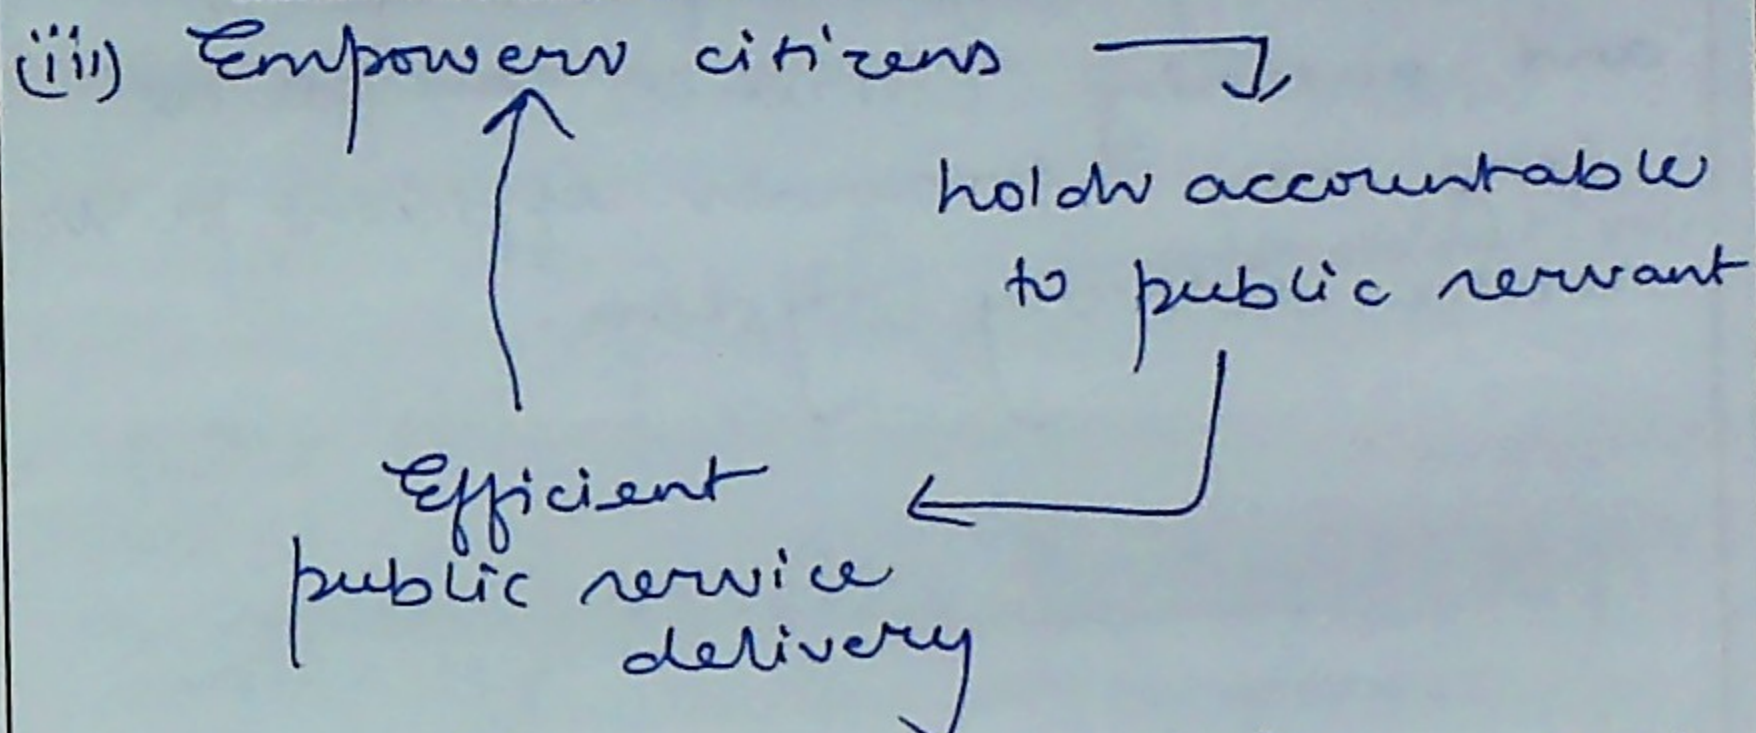 (iii) Empowers citizens
holds accountable
to public servant
Efficient
public service
delivery